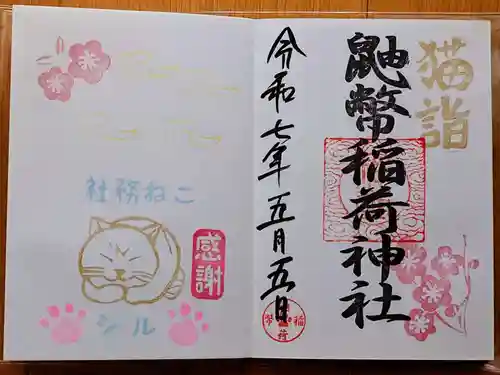 猫詣
鼬幣稲荷神社
令和七年五月五日
社務ねこ
感謝
シール